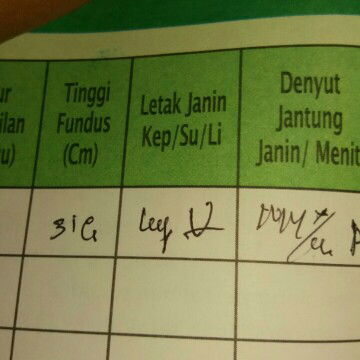 ur
ilan
u)
Tinggi
Fundus
(Cm)
Letak Janin
Kep/Su/Li
Denyut
Jantung
Janin/ Menit